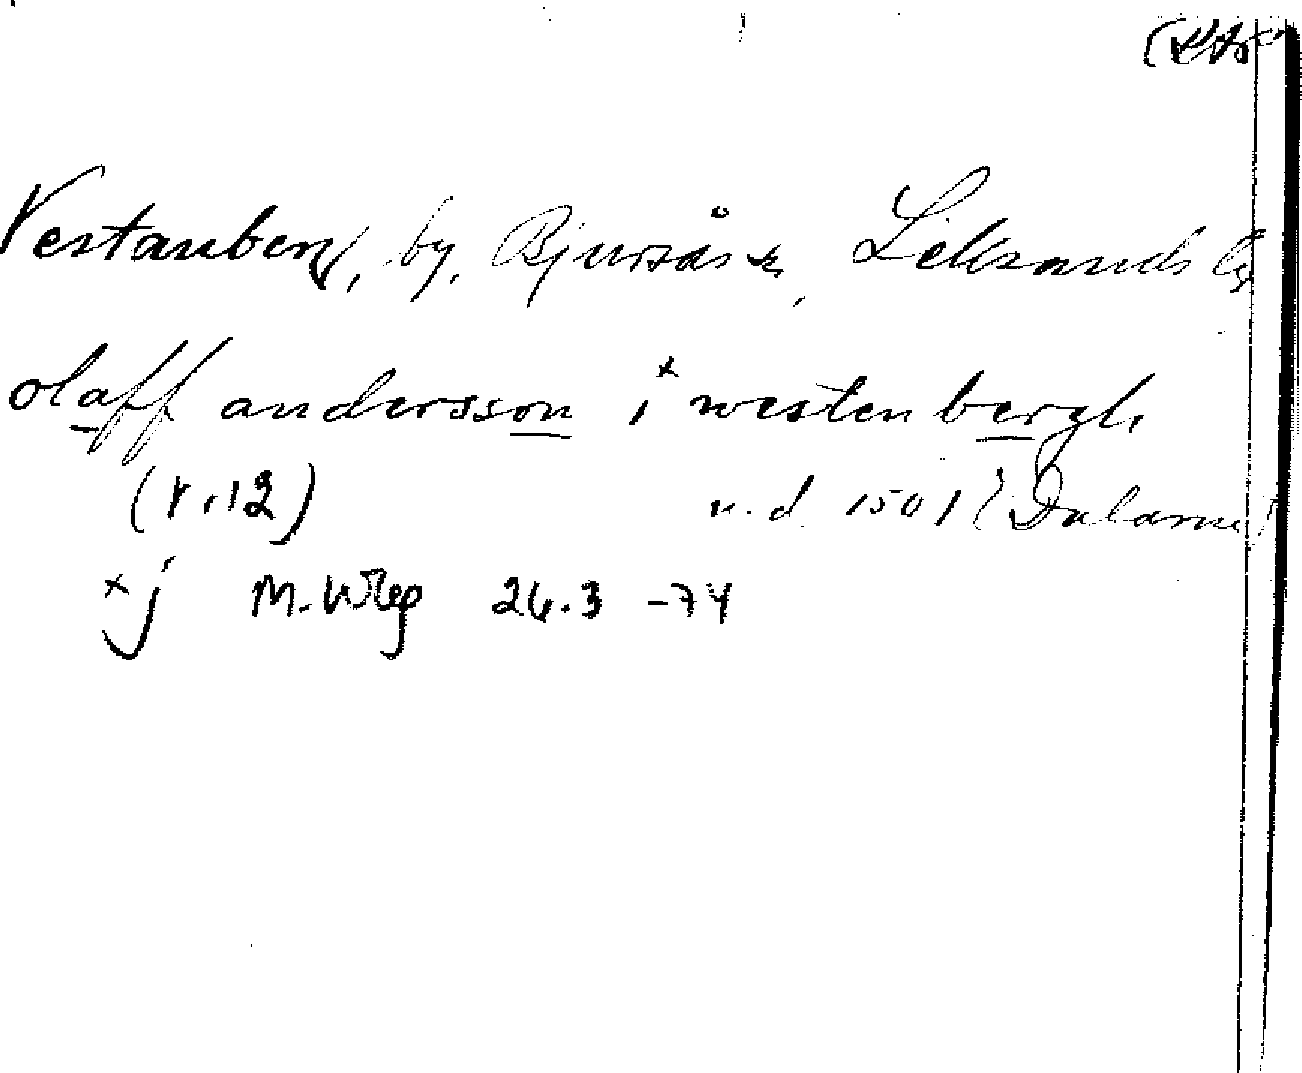 Vestanberg, by, Bjursås sn, Leksands
olaff andersson i x westenbergh
(r. 12) u.d. 1501 (Dalarne)
x j M. Wbg 26.3 -74